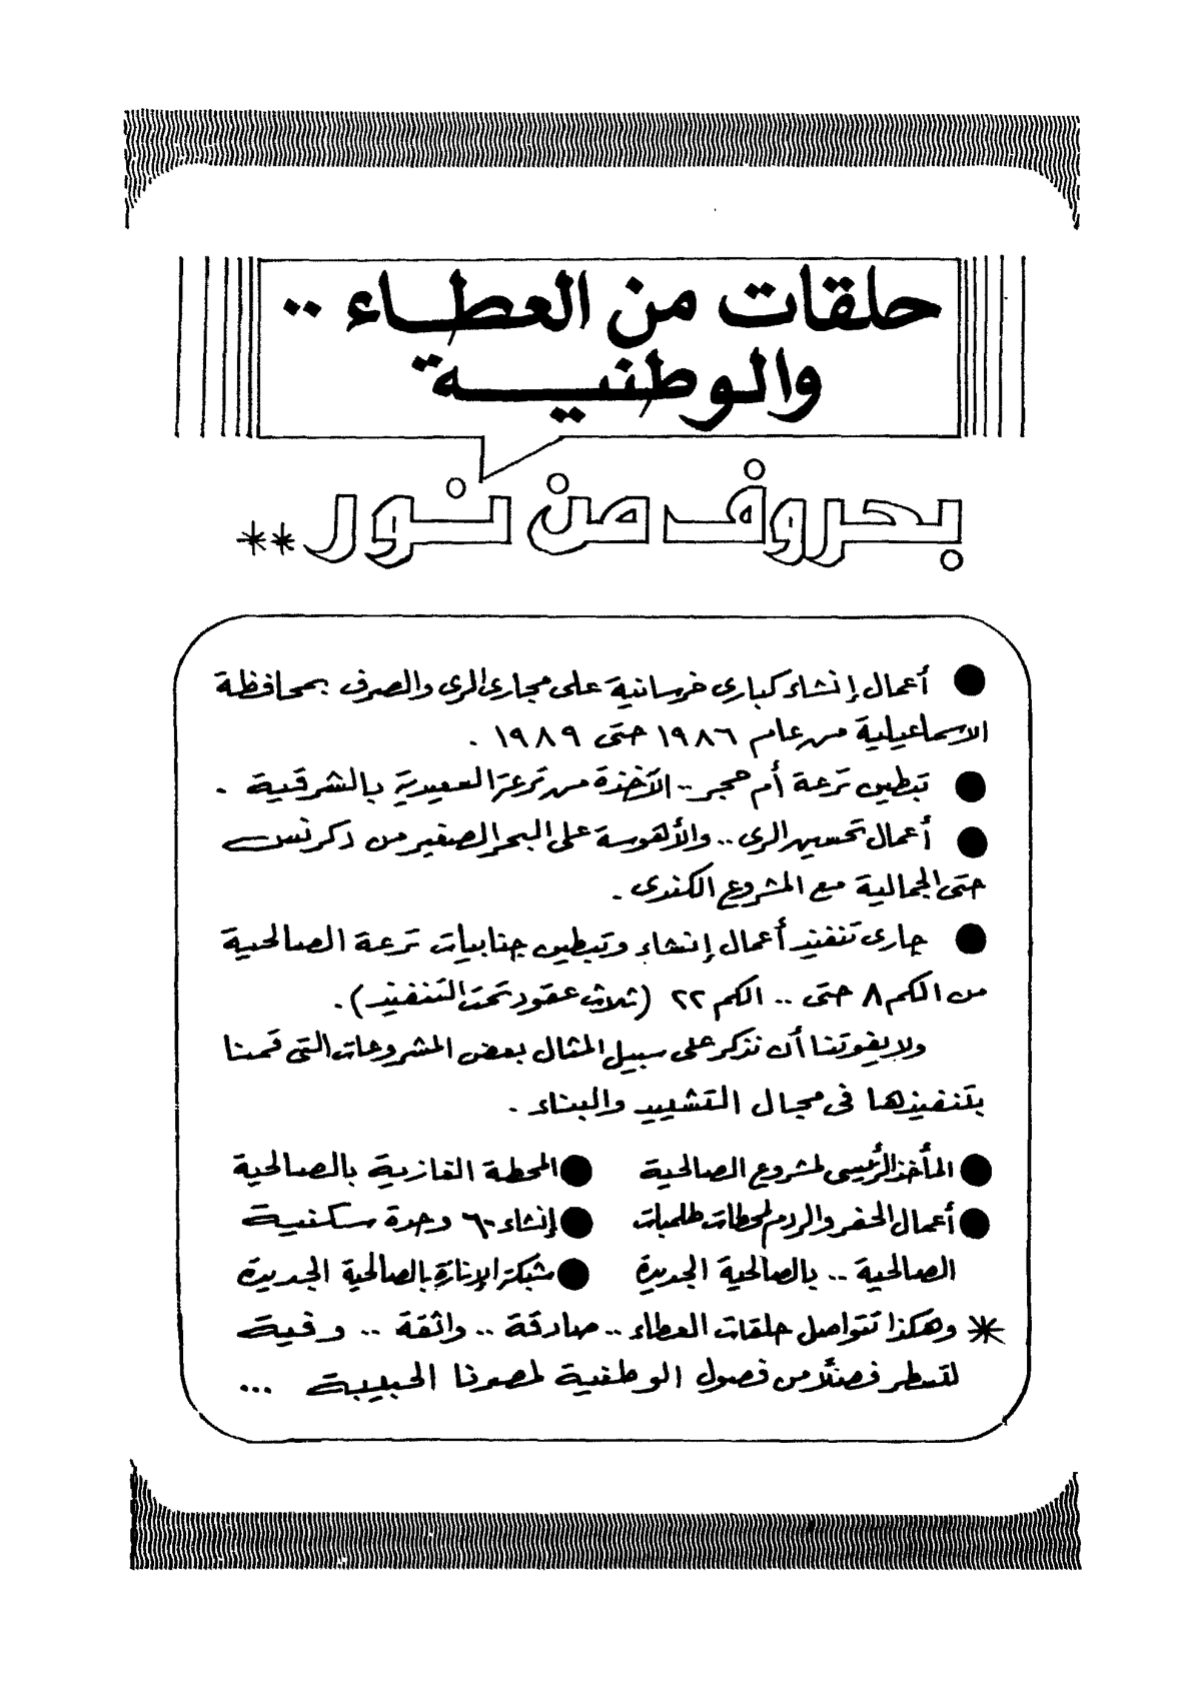 حلقات من العطاء ..
والوطنية
بحروف من نور **
● أعمال إنشاء كبارى خرسانية على مجارى الرى والصرف بمحافظة
الاسماعيلية من عام ١٩٨٦ حتى ١٩٨٩ .
● تبطين ترعة أم حجر .. الآخذة من ترعة السعيدية بالشرقية .
● أعمال تحسين الرى .. والأهوسة على البحر الصغير من دكرنس
حتى الجمالية مع المشروع الكندى .
● جارى تنفيذ أعمال إنشاء وتبطين جنابيات ترعة الصالحية
من الكم ٨ حتى .. الكم ٢٢ (ثلاث عقود تحت التنفيذ) .
ولا يفوتنا أن نذكر على سبيل المثال بعض المشروعات التى قمنا
بتنفيذها فى مجال التشييد والبناء .
● المأخذ الرئيسى لمشروع الصالحية
● أعمال الحفر والردم لمحطات طلمبات
الصالحية .. بالصالحية الجديدة
● المحطة الغازية بالصالحية
● إنشاء ٦٠ وحدة سكنية
● شبكة الإنارة بالصالحية الجديدة
* وهكذا تتواصل حلقات العطاء .. صادقة .. واثقة .. وفية
لتسطر فصلاً من فصول الوطنية لمصرنا الحبيبة ...